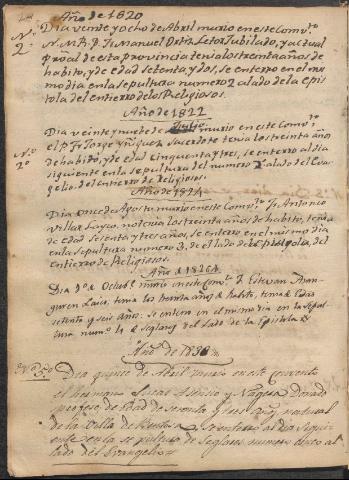 Año de 1820
Nº 2º
Dia veinte y ocho de Abril murio en este Convto
N. M. R. P. Fr Manuel Ortiz Letor Jubilado, y actual
pro al de esta provincia tenia los treinta años de
habito, y de edad setenta y dos, se enterro en el mis
mo dia en la sepultura numero 2 alado de la epis
tola del entierro de los Religiosos.
Año de 1822
Nº 2º
Dia veinte y nuebe de Julio murio en este Convto
el P. Fr Jorge Yñiguez Sacerdote tenia los treinta años
de habito, y de edad cinquenta y tres, se enterro al dia
siguiente en la sepultura del numero 2 alado del Evan
gelio del entierro de Religiosos.
Año de 1824
Dia once de Agosto murio en este Convto Fr Antonio
Villar Layco, tenia los treinta años de habito,
de edad sesenta y tres años, se enterro en el mismo dia
en la sepultura numero 3, de el lado de la Epistola, del
entierro de Religiosos.
Año d 1826
Dia de Octubre murio en este Convto Fr Estevan
Laico, tenia los treinta años d habito, tenia d Edad
setenta y seis años. se enterro en el mismo dia en la Sepul
tura numo 4 d Seglares del Lado de la Epistola
Año de 1830
Nº 5º
Dia quince de Abril murio en este Convento
el hermano Lucas y Nagera Donado
profeso, de edad de sesenta y tres años, natural
de la Villa de se enterro al dia siguie
ente en la sepultura de Seglares numero cinco al
lado del Evangelio